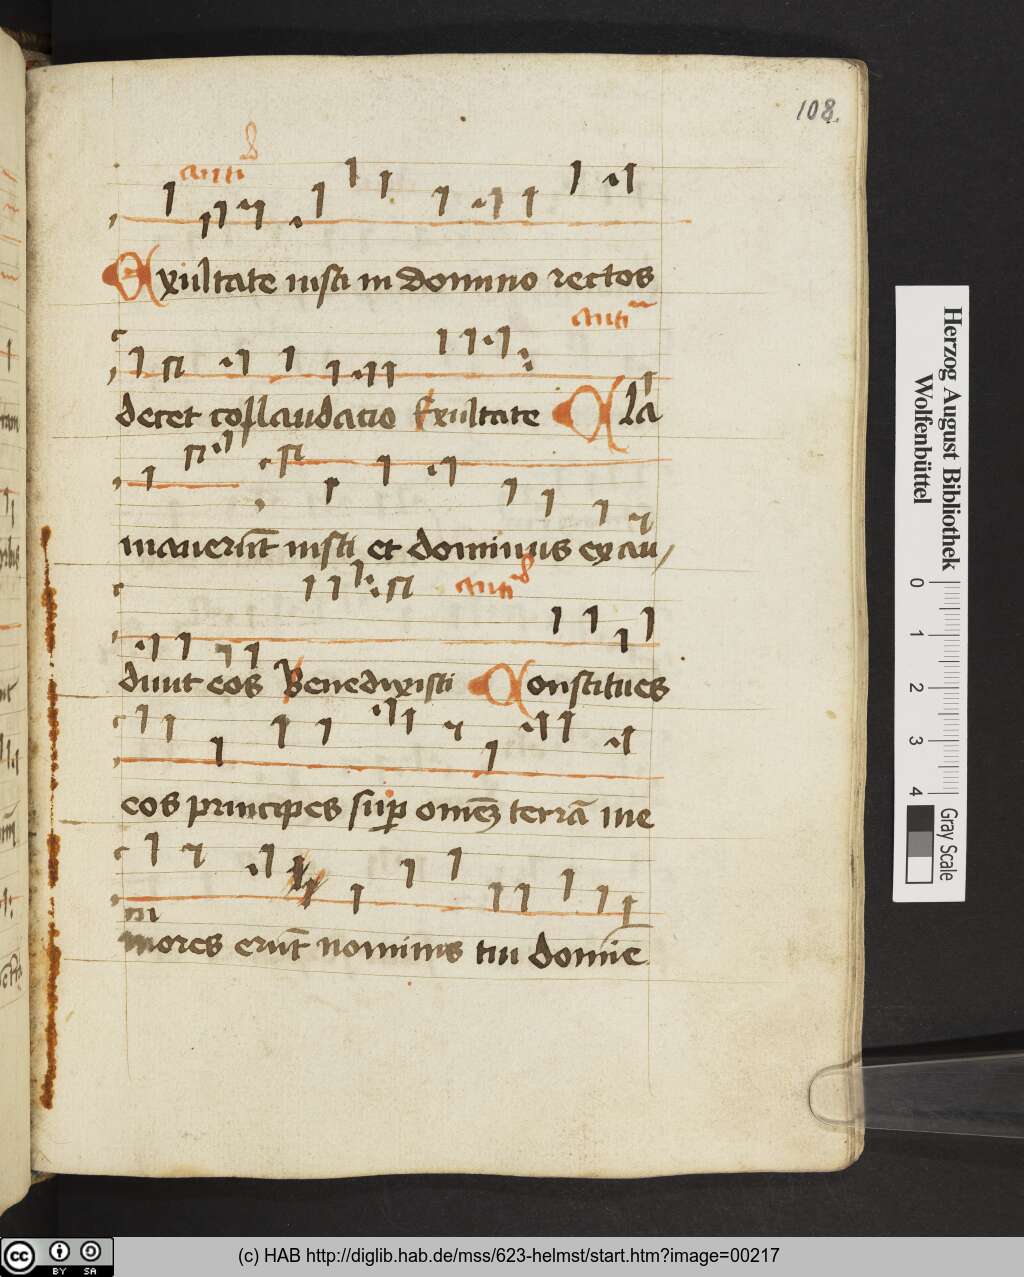 108.
anti
Exultate iusti in domino rectos
anti
decet collaudacio Exultate Cla
mauerūt iusti et dominus exau
diuit eos Benedixisti Constitues
anti
eos principes sup omēz terrā me
m
mores erūt nominis tui domīe
Herzog August Bibliothek
Wolfenbüttel
0 1 2 3 4
Gray Scale
cc BY SA
(c) HAB http://diglib.hab.de/mss/623-helmst/start.htm?image=00217